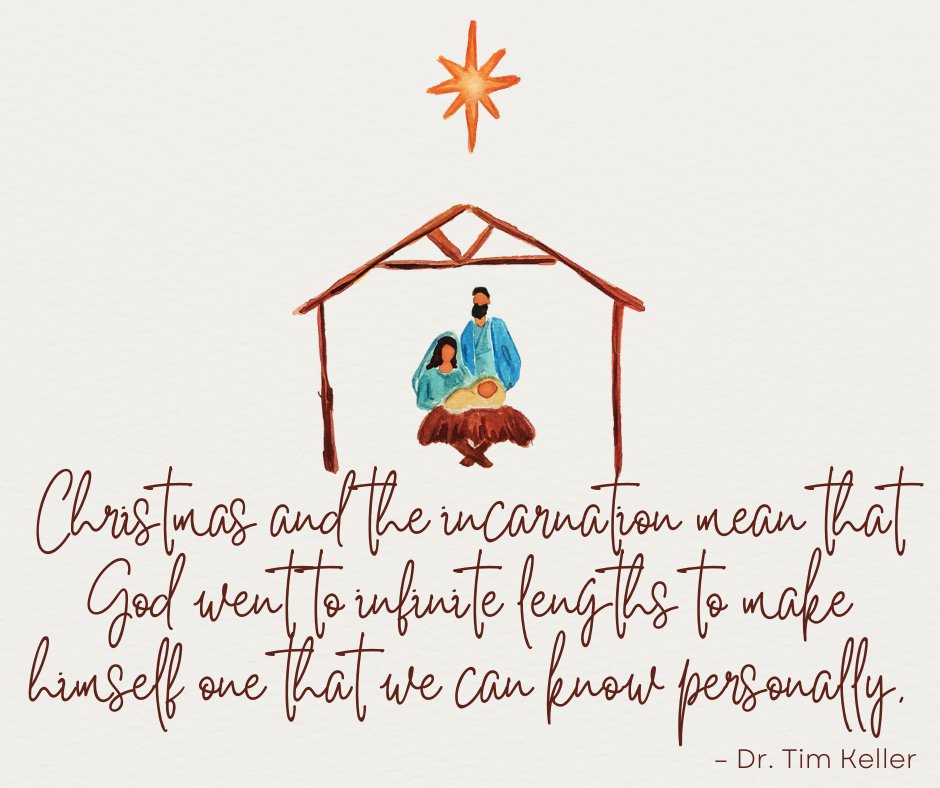 Christmas and the incarnation mean that
God went to infinite lengths to make
himself one that we can know personally.
– Dr. Tim Keller